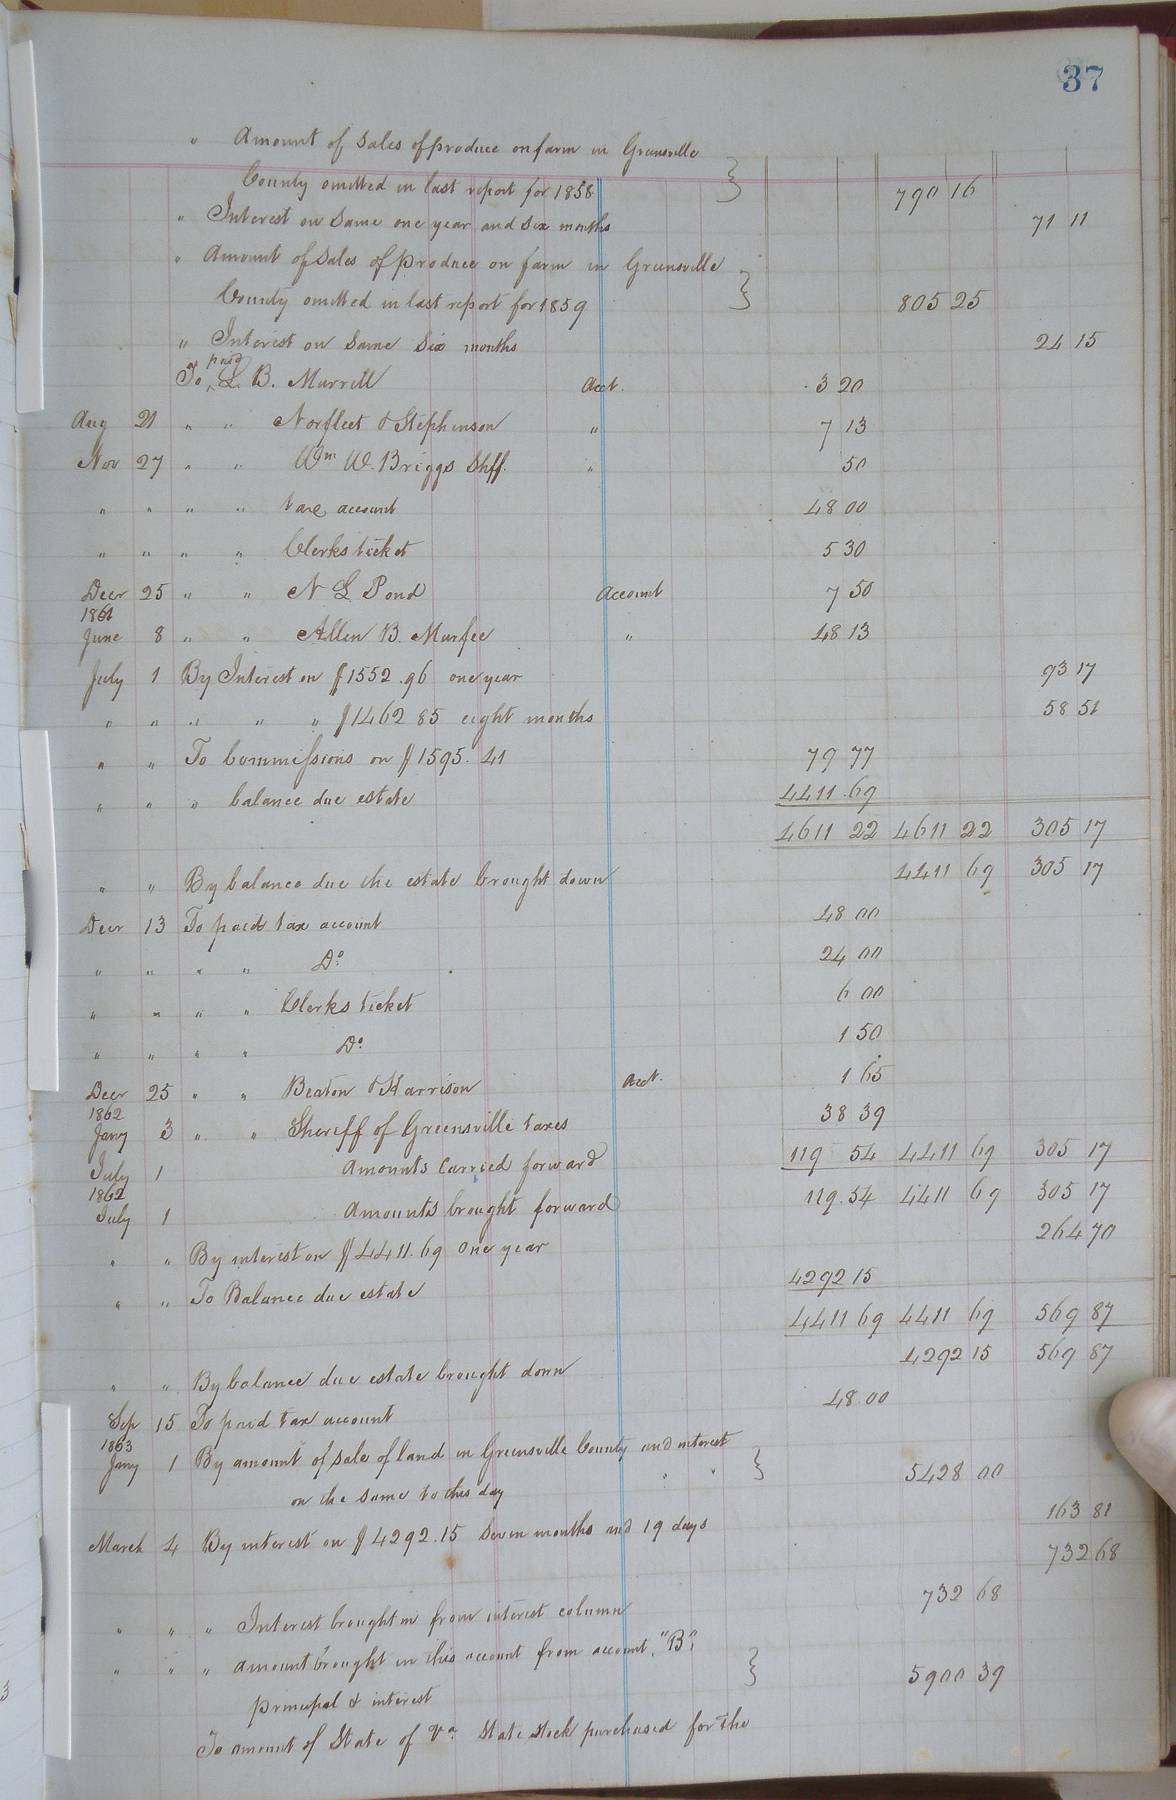 37
" Amount of Sales of produce on farm in Greensville
County omitted in last report for 1858 } 790 16
" Interest on Same one year and Six months 71 11
" Amount of Sales of produce on farm in Greensville
County omitted in last report for 1859 } 805 25
" Interest on Same Six months 24 15
To paid L. B. Murrell Acct. 3 20
Aug 21 " " Norfleet & Stephenson " 7 13
Nov 27 " " Wm W. Briggs Shff. " 50
" " " " taxe account 48 00
" " " " Clerks ticket 5 30
Decr 25 " " N L Pond Account 7 50
1861
June 8 " " Allen B. Murfee " 48 13
July 1 By Interest on $1552.96 one year 93 17
" " " " " $1462 85 eight months 58 51
" " To Commissions on $1595.41 79 77
" " " balance due estate 4411.69
4611 22 4611 22 305 17
" " By balance due the estate brought down 4411 69 305 17
Decr 13 To paid tax account 48 00
" " " " Do 24 00
" " " " Clerks ticket 6 00
" " " " Do 1 50
Decr 25 " " Beaton & Harrison acct. 1 65
1862
Jany 3 " " Sheriff of Greensville taxes 38 39
July 1 Amounts Carried forward 119 54 4411 69 305 17
1862
July 1 Amounts brought forward 119.54 4411 69 305 17
" " By interest on $4411.69 One year 264 70
" " To Balance due estate 4292 15
4411 69 4411 69 569 87
" " By balance due estate brought down 4292 15 569 87
Sep 15 To paid tax account 48 00
1863
Jany 1 By amount of sale of land in Greensville County and interest
on the same to this day " " } 5428 00
March 4 By interest on $4292.15 Seven months and 19 days 163 81
732 68
" " " Interest brought in from interest column 732 68
" " " amount brought in this account from account "B"
principal & interest } 5900 39
To amount of State of Va State stock purchased for the